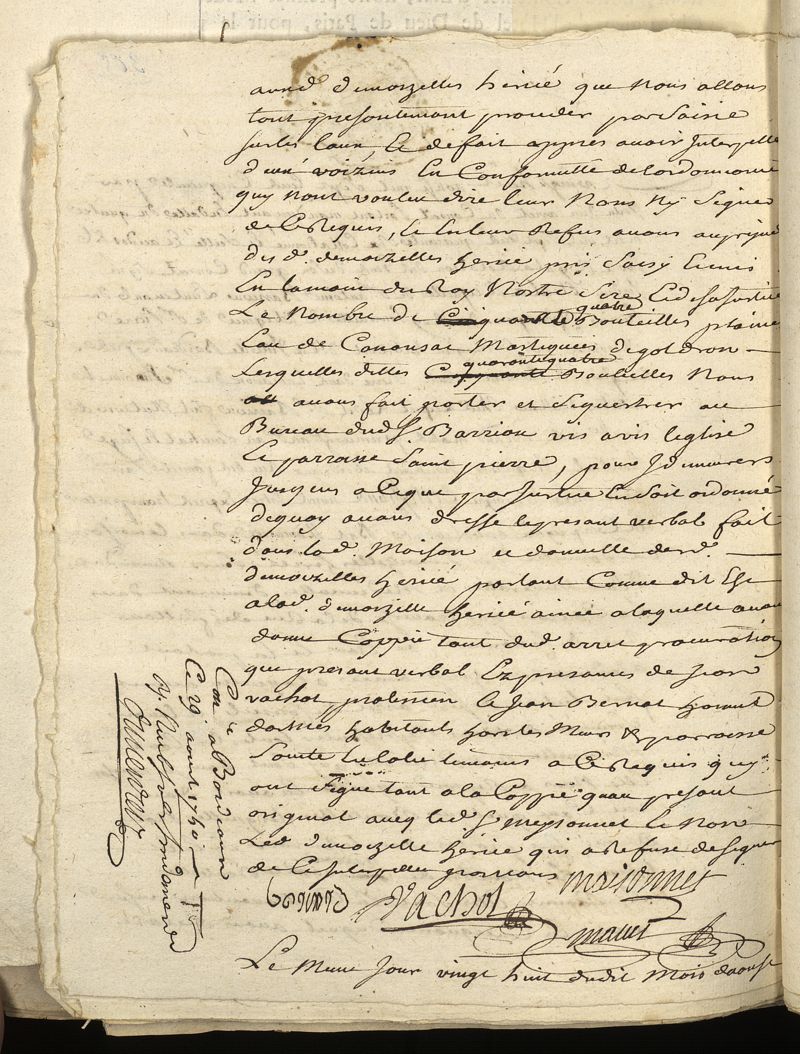 auxd. demoizelles herié que Nous allons
tout presentement proceder par Saisie
sur les leurs, Et de fait appres avoir Interpellé
deux voizins En Conformitté de lordonnance
quy Nont vouleu dire leur Nons Ny Signer
de Ce Requis, Et En leur Refus avons au prejudice
desd. demoizelles herié pris Saisy Et mis
En la main du Roy Nostre Sire Et de sa Justice
Le Nombre de quarante quatre Bouteilles plaine
Eau de Mastiquees de goldron
Lesquelles dittes quarante quatre Bouteilles Nous
avons fait porter et Sequestrer au
Bureau dud. Sr Barriou vis avis leglise
Et parroisse Saint pierre, pour y demurer
Jusques a Ce que par Justice En Soit ordonné
De quoy avons dressé le presant verbal fait
dans lad. Maison et domicille desd.
demoizelles herié parlant Comme dit Est
a lad. demoizelle herié ainée a laquelle avons
donné Coppie tant dud. arret procuration
que presant verbal En presances de Jean
vachot praticien Et Jean Bernat
habitants hors les Murs & parroisse
Sainte Eulalie temoins a Ce Requis quy
ont Signé tant a la Coppie quau presant
original avec led. Sr Meysonnet Et Non
Lad. demoizelle herié qui a Refusé de Signer
de Ce Interpellée par Nous
maisonnet
Bernat Vachot
mauet
Le Meme Jour vingt huit dudit Mois daoust
Con.lé a Bordeaux
Ce 29 aoust 1740